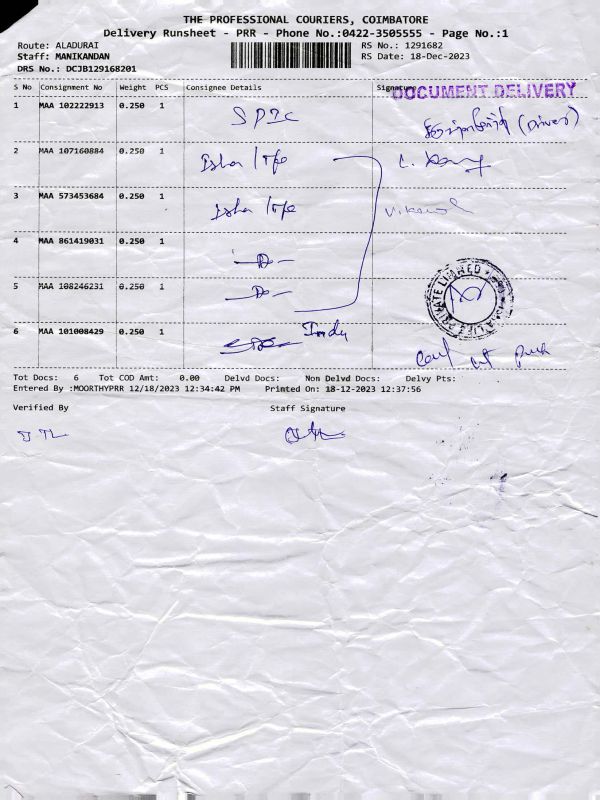 THE PROFESSIONAL COURIERS, COIMBATORE
Delivery Runsheet - PRR - Phone No.:0422-3505555 - Page No.:1
Route: ALADURAI RS No.: 1291682
Staff: MANIKANDAN RS Date: 18-Dec-2023
DRS No.: DCJB129168201
S No Consignment No Weight PCS Consignee Details Signature
DOCUMENT DELIVERY
1 MAA 102222913 0.250 1
(Driver)
2 MAA 107160884 0.250 1 Isha
3 MAA 573453684 0.250 1 Isha
4 MAA 861419031 0.250 1 -Do-
5 MAA 108246231 0.250 1 -Do-
PRIVATE LIMITED
6 MAA 101008429 0.250 1
Tot Docs: 6 Tot COD Amt: 0.00 Delvd Docs: Non Delvd Docs: Delvy Pts:
Entered By :MOORTHYPRR 12/18/2023 12:34:42 PM Printed On: 18-12-2023 12:37:56
Verified By Staff Signature